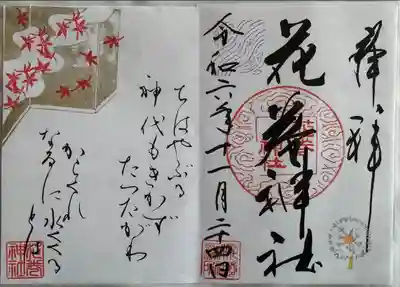 奉拝
花葬神社
令和六年十一月二十四日
ちはやぶる
神代もきかず
たつたがわ
からくれ
なゐに水くくる
とは